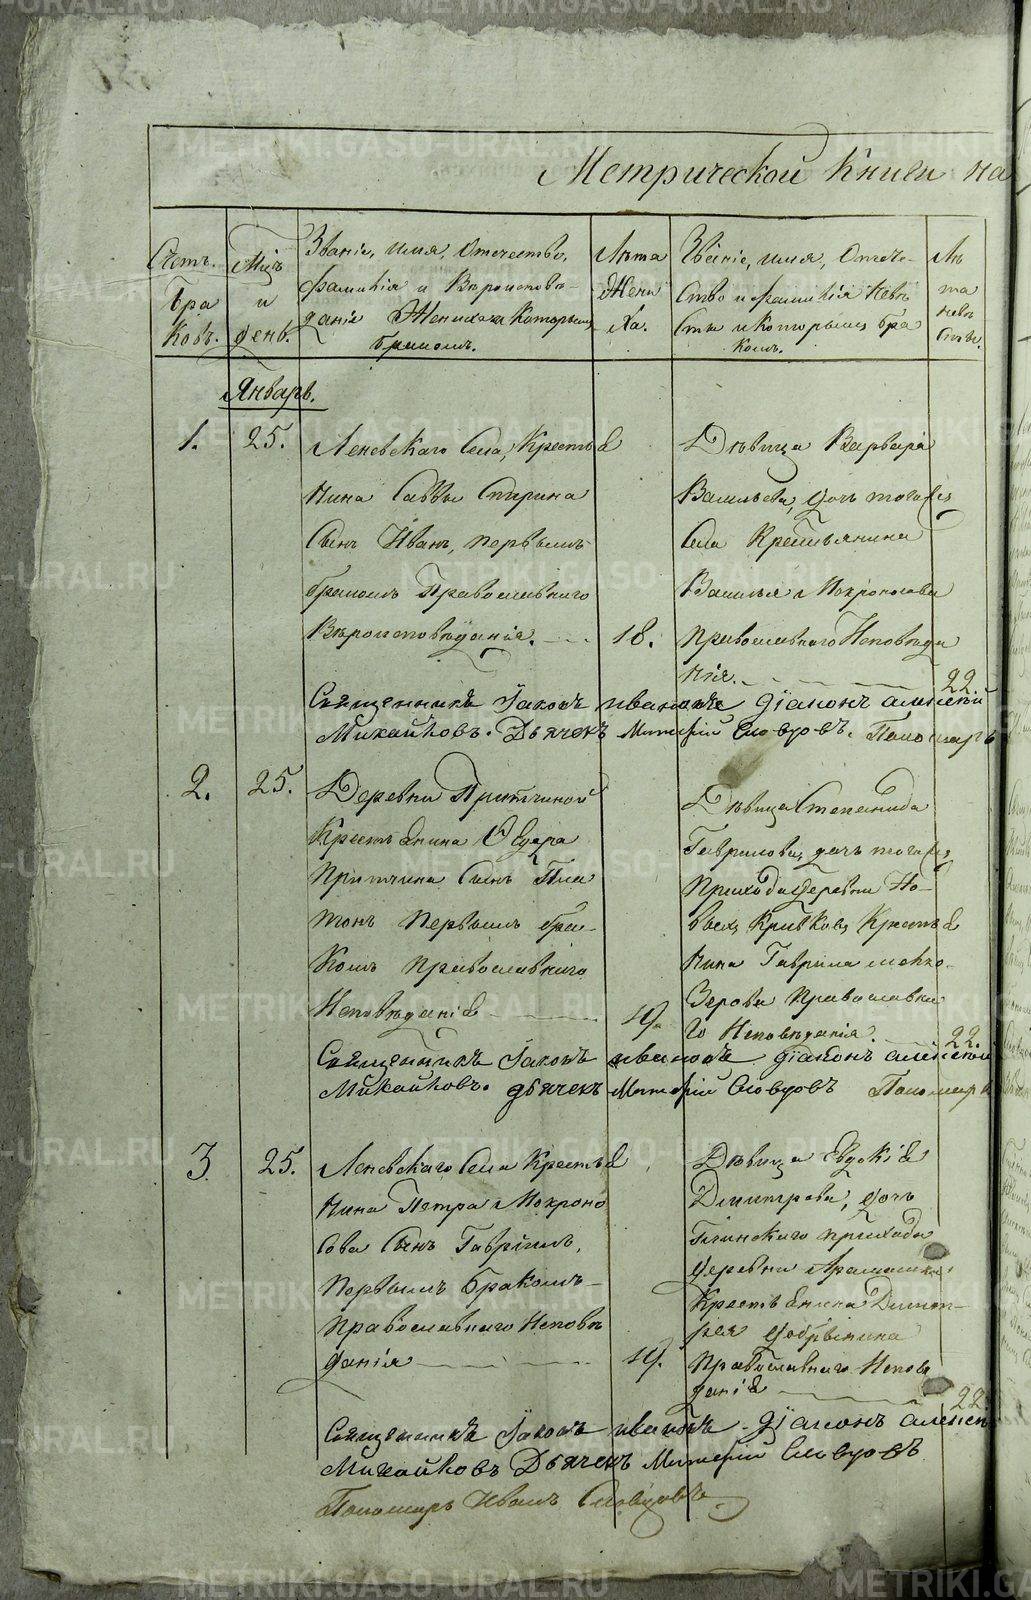 Метрической Книги на
Счетъ.
Бра
ковъ.
Мцъ
и
день.
Званіе, имя, Отечество,
фамилія и Вѣроисповѣ-
даніе Жениха и Которымъ
бракомъ.
Лѣта
Жени
ха.
Званіе, имя, Отече-
ство и фамилія Невѣ
сты и которымъ бра
комъ.
Лѣ
та
невѣ
сты.
Январь.
1. 25.
Леневскаго Села, Крестья
нина Саввы Спирина
Сынъ Иванъ, первымъ
бракомъ Православнаго
Вѣроисповѣданія. 18.
Дѣвица Варвара
Васильева, дочь тогожъ
Села Крестьянина
Василья Мокроносова
Православнаго Исповѣда
нія. 22.
Священникъ Іаковъ Ивановъ Діаконъ Алексѣй
Михайловъ. Дьячекъ Словцовъ. Пономарь
2. 25.
Деревни Притчиной
Крестьянина Ѳедора
Притчина Сынъ Пла
тонъ первымъ бра-
комъ православнаго
Исповѣданія 19.
Дѣвица Степанида
Гаврилова, дочь тогожъ
Прихода деревни Но-
выхъ Кривковъ, Крестья
нина Гаврила
зерова Православна
го Исповѣданія. 22.
Священникъ Іаковъ Ивановъ діаконъ Алексѣй
Михайловъ. дьячекъ Словцовъ Пономарь
3. 25.
Леневскаго Села Крестья
нина Петра Мокроно
сова Сынъ Гавріилъ,
Первымъ бракомъ
православнаго Исповѣ
данія 19.
Дѣвица Евдокія
Димитрова, дочь
прихода
деревни Арамашка
Крестьянина Димит-
рія Добрынина
Православнаго Исповѣ
данія 22.
Священникъ Іаковъ Ивановъ діаконъ Алексѣй
Михайловъ Дьячекъ Словцовъ
Пономарь Иванъ Словцовъ.
METRIKI.GASO-URAL.RU